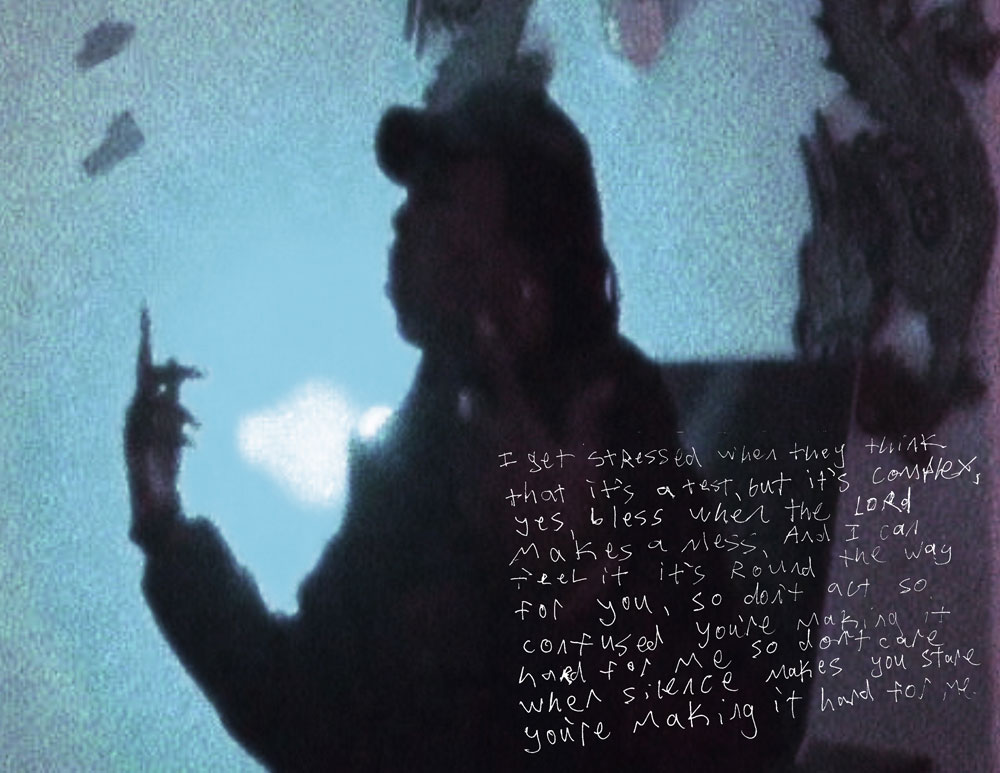 I get stressed when they think
that it's a test, but it's complex,
yes, bless when the LORD
makes a mess, And I can
feel it it's Round the way
for you, so don't act so
confused you're making it
hard for me so don't care
when silence makes you stare
you're making it hard for me.